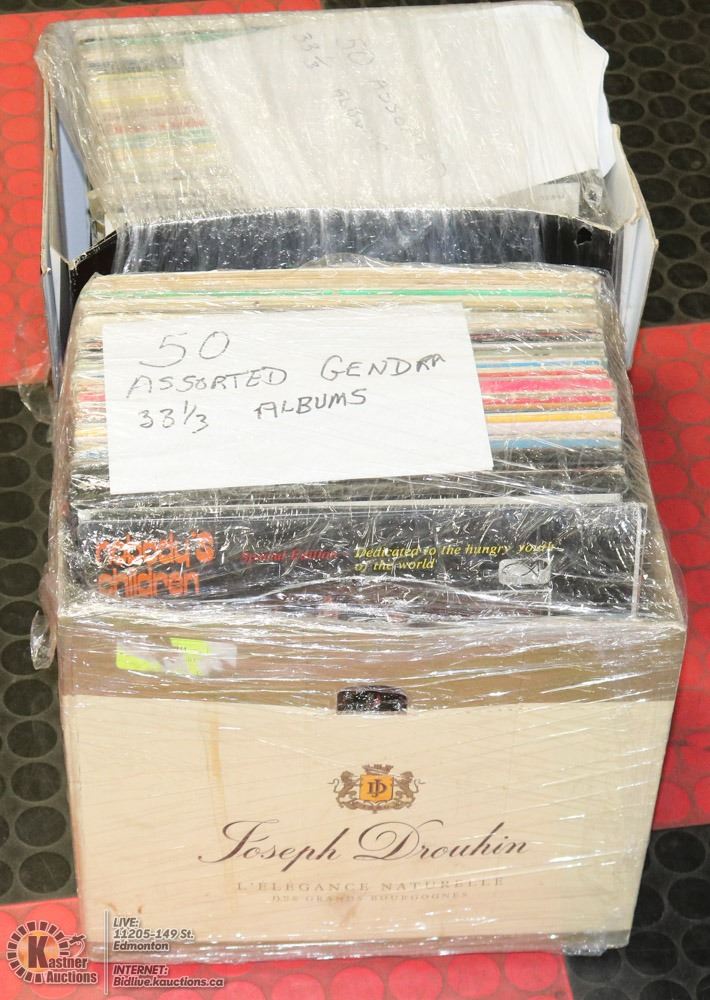 50 ASSORTED
33 1/3 ALBUMS
50
ASSORTED GENDRA
33 1/3 ALBUMS
nobody's
children
Special Edition - Dedicated to the hungry youth
of the world
JD
Joseph Drouhin
L'ELEGANCE NATURELLE
DES GRANDS BOURGOGNES
Kastner
Auctions
LIVE:
11205-149 St.
Edmonton
INTERNET:
Bidlive.kauctions.ca